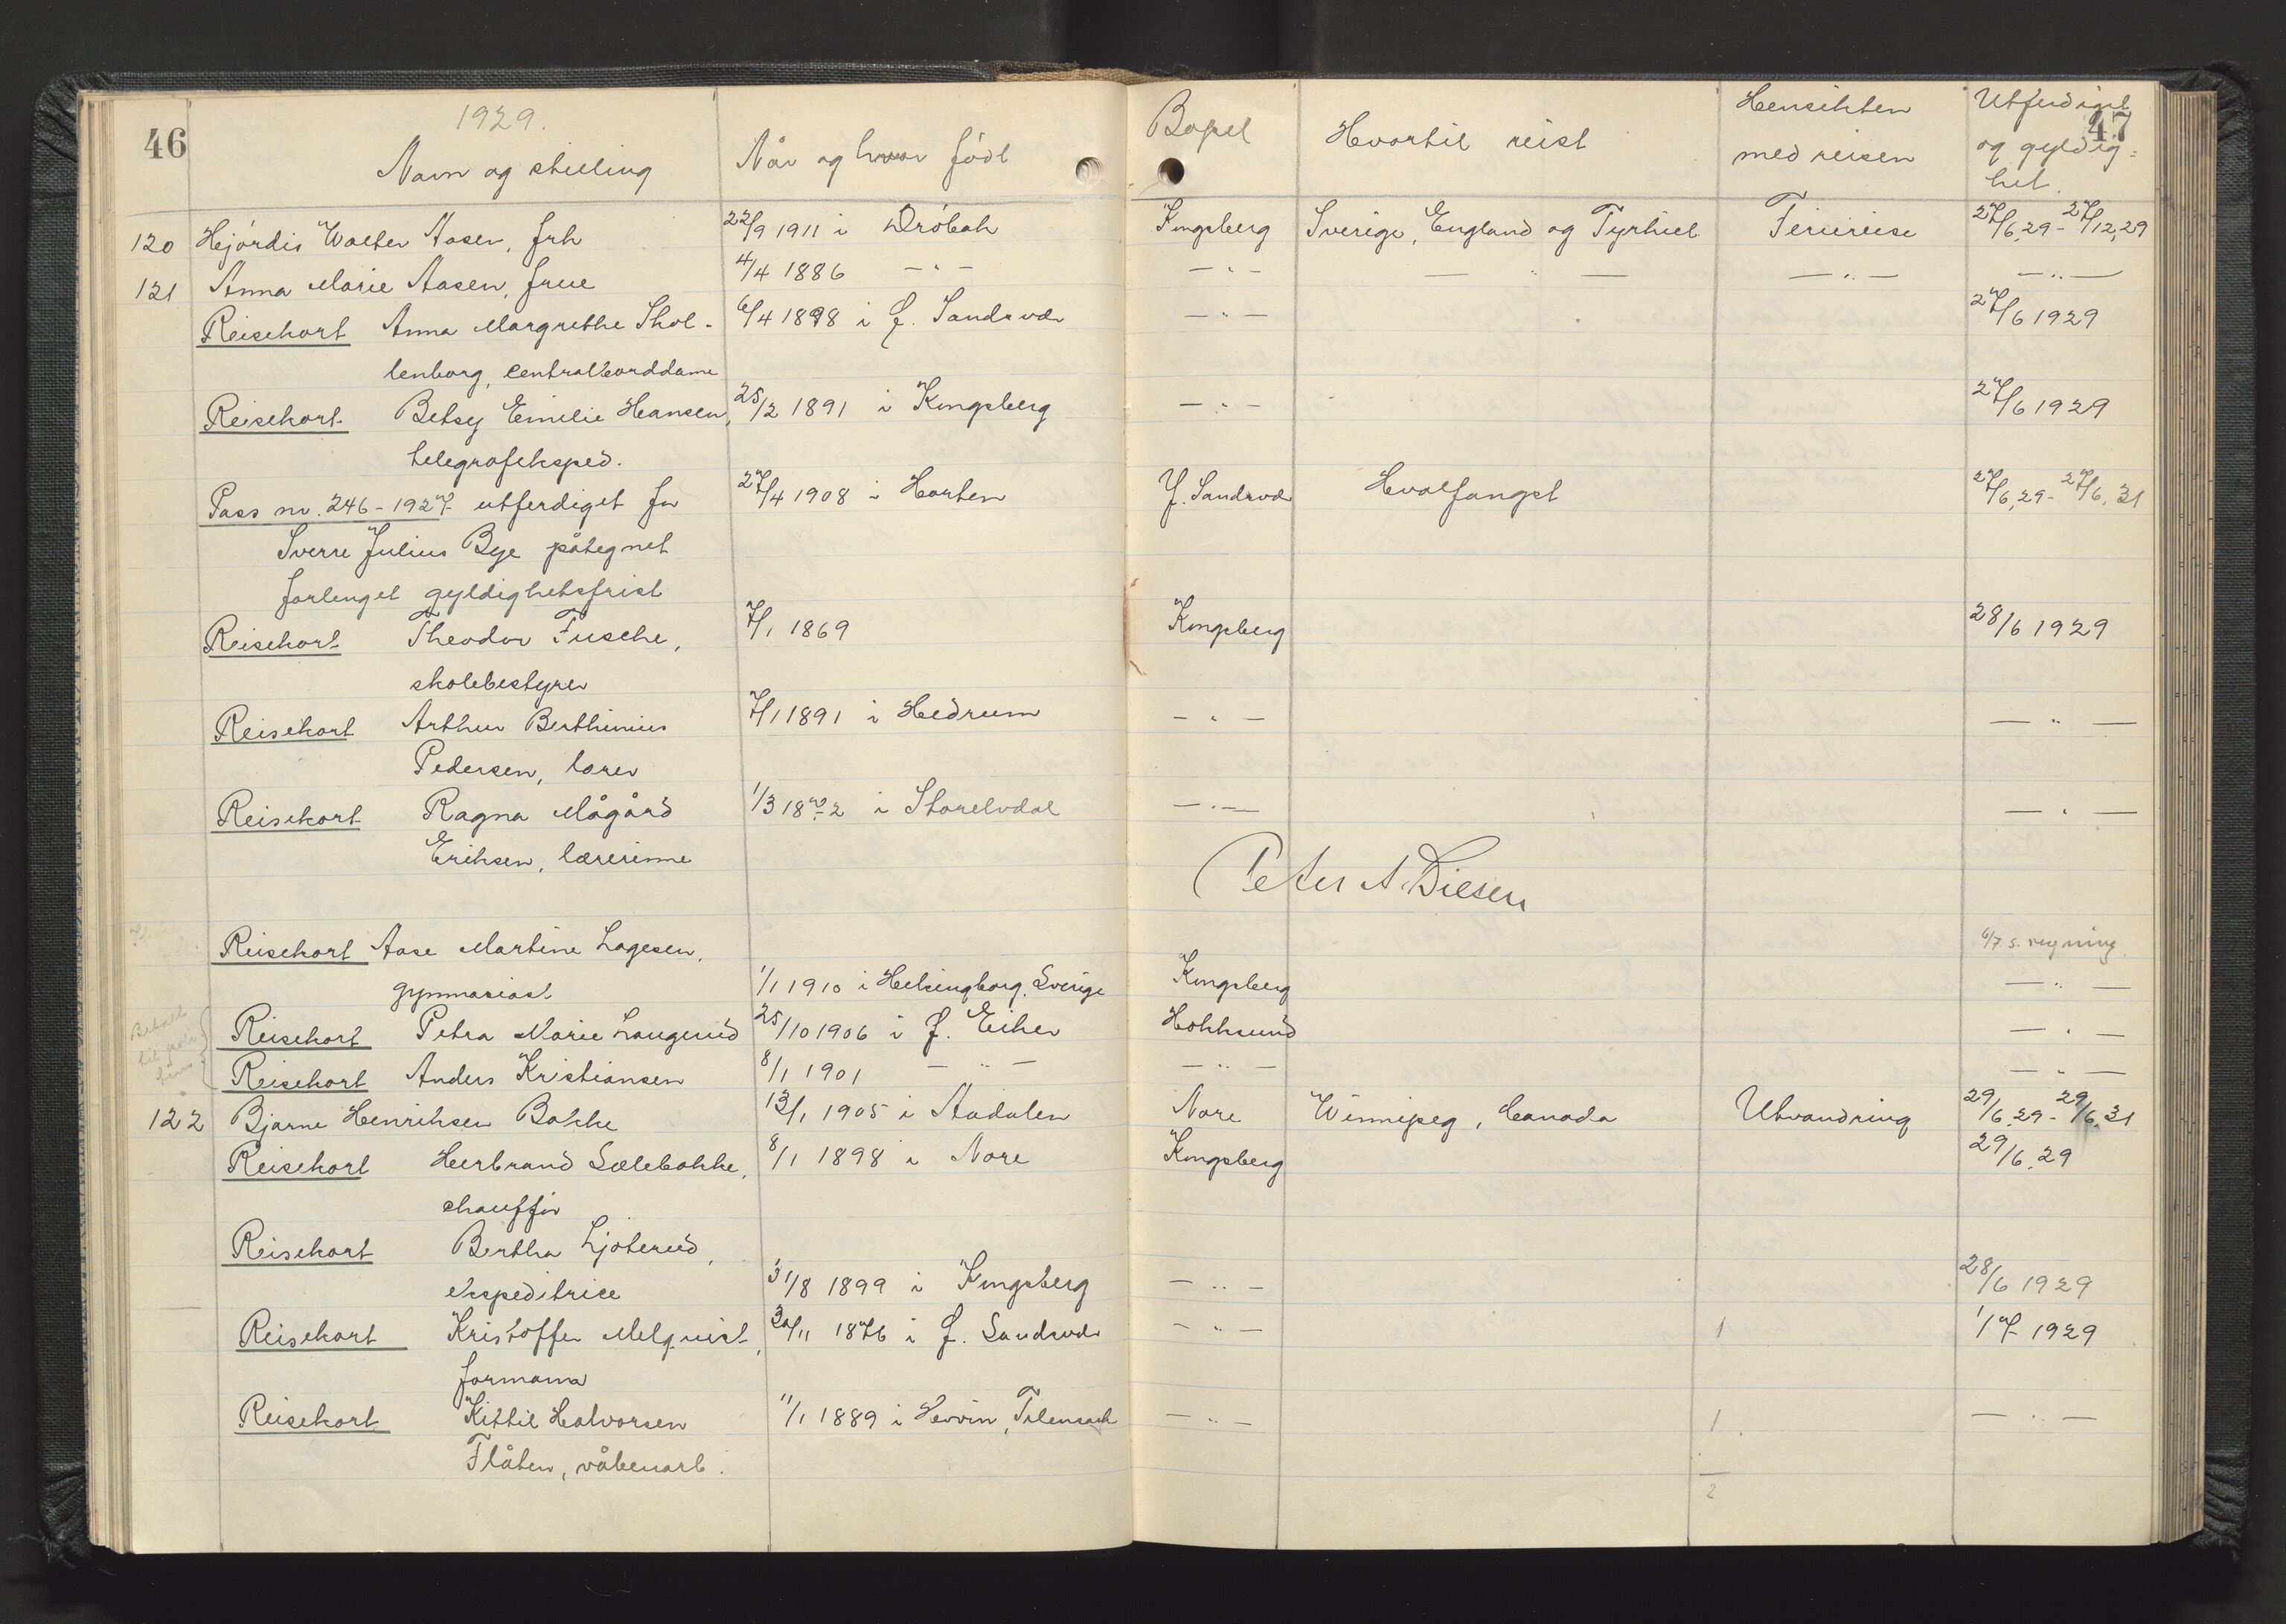 46
1929.
Navn og stilling
Når og hvor født
Bopel
Hvortil reist
Hensikten
med reisen
Utferdiget
47
og gyldig=
het.
120 Hjördis Walter Aasen, frk 22/9 1911 i Dröbak Kongsberg Sverige, England og Tyskiel Feriereise 27/6.29 - 27/12.29
121 Anna Marie Aasen, frue 4/4 1886 — " — — " — — " — — " — — " —
Reisekort Anna Margrethe Skol- 6/4 1898 i Y. Sandsvær — " — 27/6 1929
lenborg, centralborddame
Reisekort Betsy Emilie Hansen, 25/2 1891 i Kongsberg — " — 27/6 1929
telegrafeksped.
Pass nr. 246 - 1927 utferdiget for 27/4 1908 i Horten Y. Sandsvær Hvalfangst 27/6.29 - 27/6.31
Sverre Julius Bye påtegnet
forlenget gyldighetsfrist
Reisekort Theodor Fusche, 7/1 1869 Kongsberg 28/6 1929
skolebestyrer
Reisekort Arthur Berthinius 7/1 1891 i Hedrum — " — — " —
Pedersen, lærer
Reisekort Ragna Mågård 1/3 1872 i Storelvdal — " — — " —
Eriksen, lærerinne
Peter A. Diesen
Reisekort Aase Martine Lagesen, 6/7 s. regning.
gymnasiast 1/1 1910 i Helsingborg. Sverige Kongsberg — " —
Reisekort Petra Marie Langerud 25/10 1906 i Ø. Eiker Hokksund — " —
Reisekort Anders Kristiansen 8/1 1901 — " — — " — — " —
122 Bjarne Henriksen Bakke 13/1 1905 i Aadalen Nore Winnipeg, Canada Utvandring 29/6.29 - 29/6.31
Reisekort Herbrand Sælebakke, 8/1 1898 i Nore Kongsberg 29/6.29
chauffør
Reisekort Bertha Ljoterud,
ekspeditrice 31/8 1899 i Kongsberg — " — 28/6 1929
Reisekort Kristoffer Melquist, 30/11 1876 i Y. Sandsvær — " — 1 1/7 1929
formann
Reisekort Kittil Halvorsen 11/1 1889 i Hovin, Telemark — " — 1 — " —
Flåten, våbenarb.
2